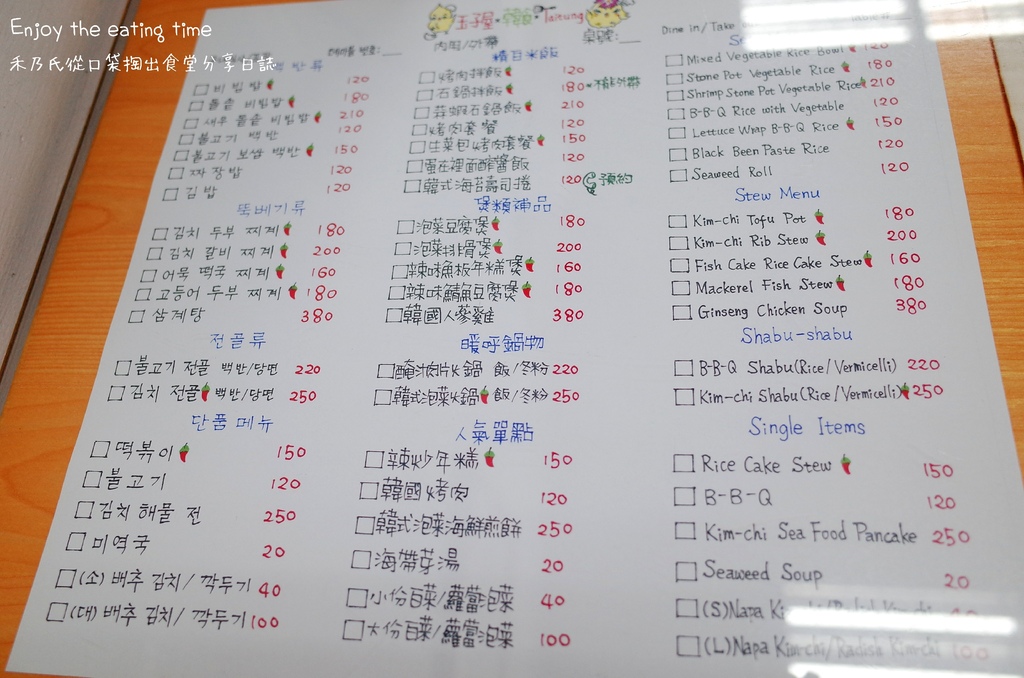 Enjoy the eating time
禾乃氏從口袋掏出食堂分享日誌
Taitung
내용 번호:
內用/外帶
桌號:
Dine in/Take
백반류
비빔밥 120
돌솥 비빔밥 180
새우 돌솥 비빔밥 210
불고기 백반 120
불고기 보쌈 백반 150
짜장밥 120
김밥 120
뚝베기류
김치 두부 찌게 180
김치 갈비 찌게 200
어묵 떡국 찌게 160
고등어 두부 찌게 180
삼계탕 380
전골류
불고기 전골 백반/당면 220
김치 전골 백반/당면 250
단품메뉴
떡볶이 150
불고기 120
김치 해물 전 250
미역국 20
(소) 배추 김치/깍두기 40
(대) 배추 김치/깍두기 100
精百米飯
烤肉拌飯 120
石鍋拌飯 180 不能外帶
蒜蝦石鍋飯 210
烤肉套餐 120
生菜包烤肉套餐 150
蛋在裡面酢醬飯 120
韓式海苔壽司捲 120 預約
煲類補品
泡菜豆腐煲 180
泡菜排骨煲 200
辣味魚板年糕煲 160
辣味鯖魚豆腐煲 180
韓國人蔘雞 380
暖呼鍋物
醃汁肉片火鍋 飯/冬粉 220
韓式泡菜火鍋 飯/冬粉 250
人氣單點
辣炒年糕 150
韓國烤肉 120
韓式泡菜海鮮煎餅 250
海帶芽湯 20
小份白菜/蘿蔔泡菜 40
大份白菜/蘿蔔泡菜 100
Mixed Vegetable Rice Bowl
Stone Pot Vegetable Rice 180
Shrimp Stone Pot Vegetable Rice 210
B-B-Q Rice with Vegetable 120
Lettuce Wrap B-B-Q Rice 150
Black Been Paste Rice 120
Seaweed Roll 120
Stew Menu
Kim-chi Tofu Pot 180
Kim-chi Rib Stew 200
Fish Cake Rice Cake Stew 160
Mackerel Fish Stew 180
Ginseng Chicken Soup 380
Shabu-shabu
B-B-Q Shabu(Rice/Vermicelli) 220
Kim-chi Shabu(Rice/Vermicelli) 250
Single Items
Rice Cake Stew 150
B-B-Q 120
Kim-chi Sea Food Pancake 250
Seaweed Soup 20
(S)Napa Kim-chi/Radish Kim-chi 40
(L)Napa Kim-chi/Radish Kim-chi 100